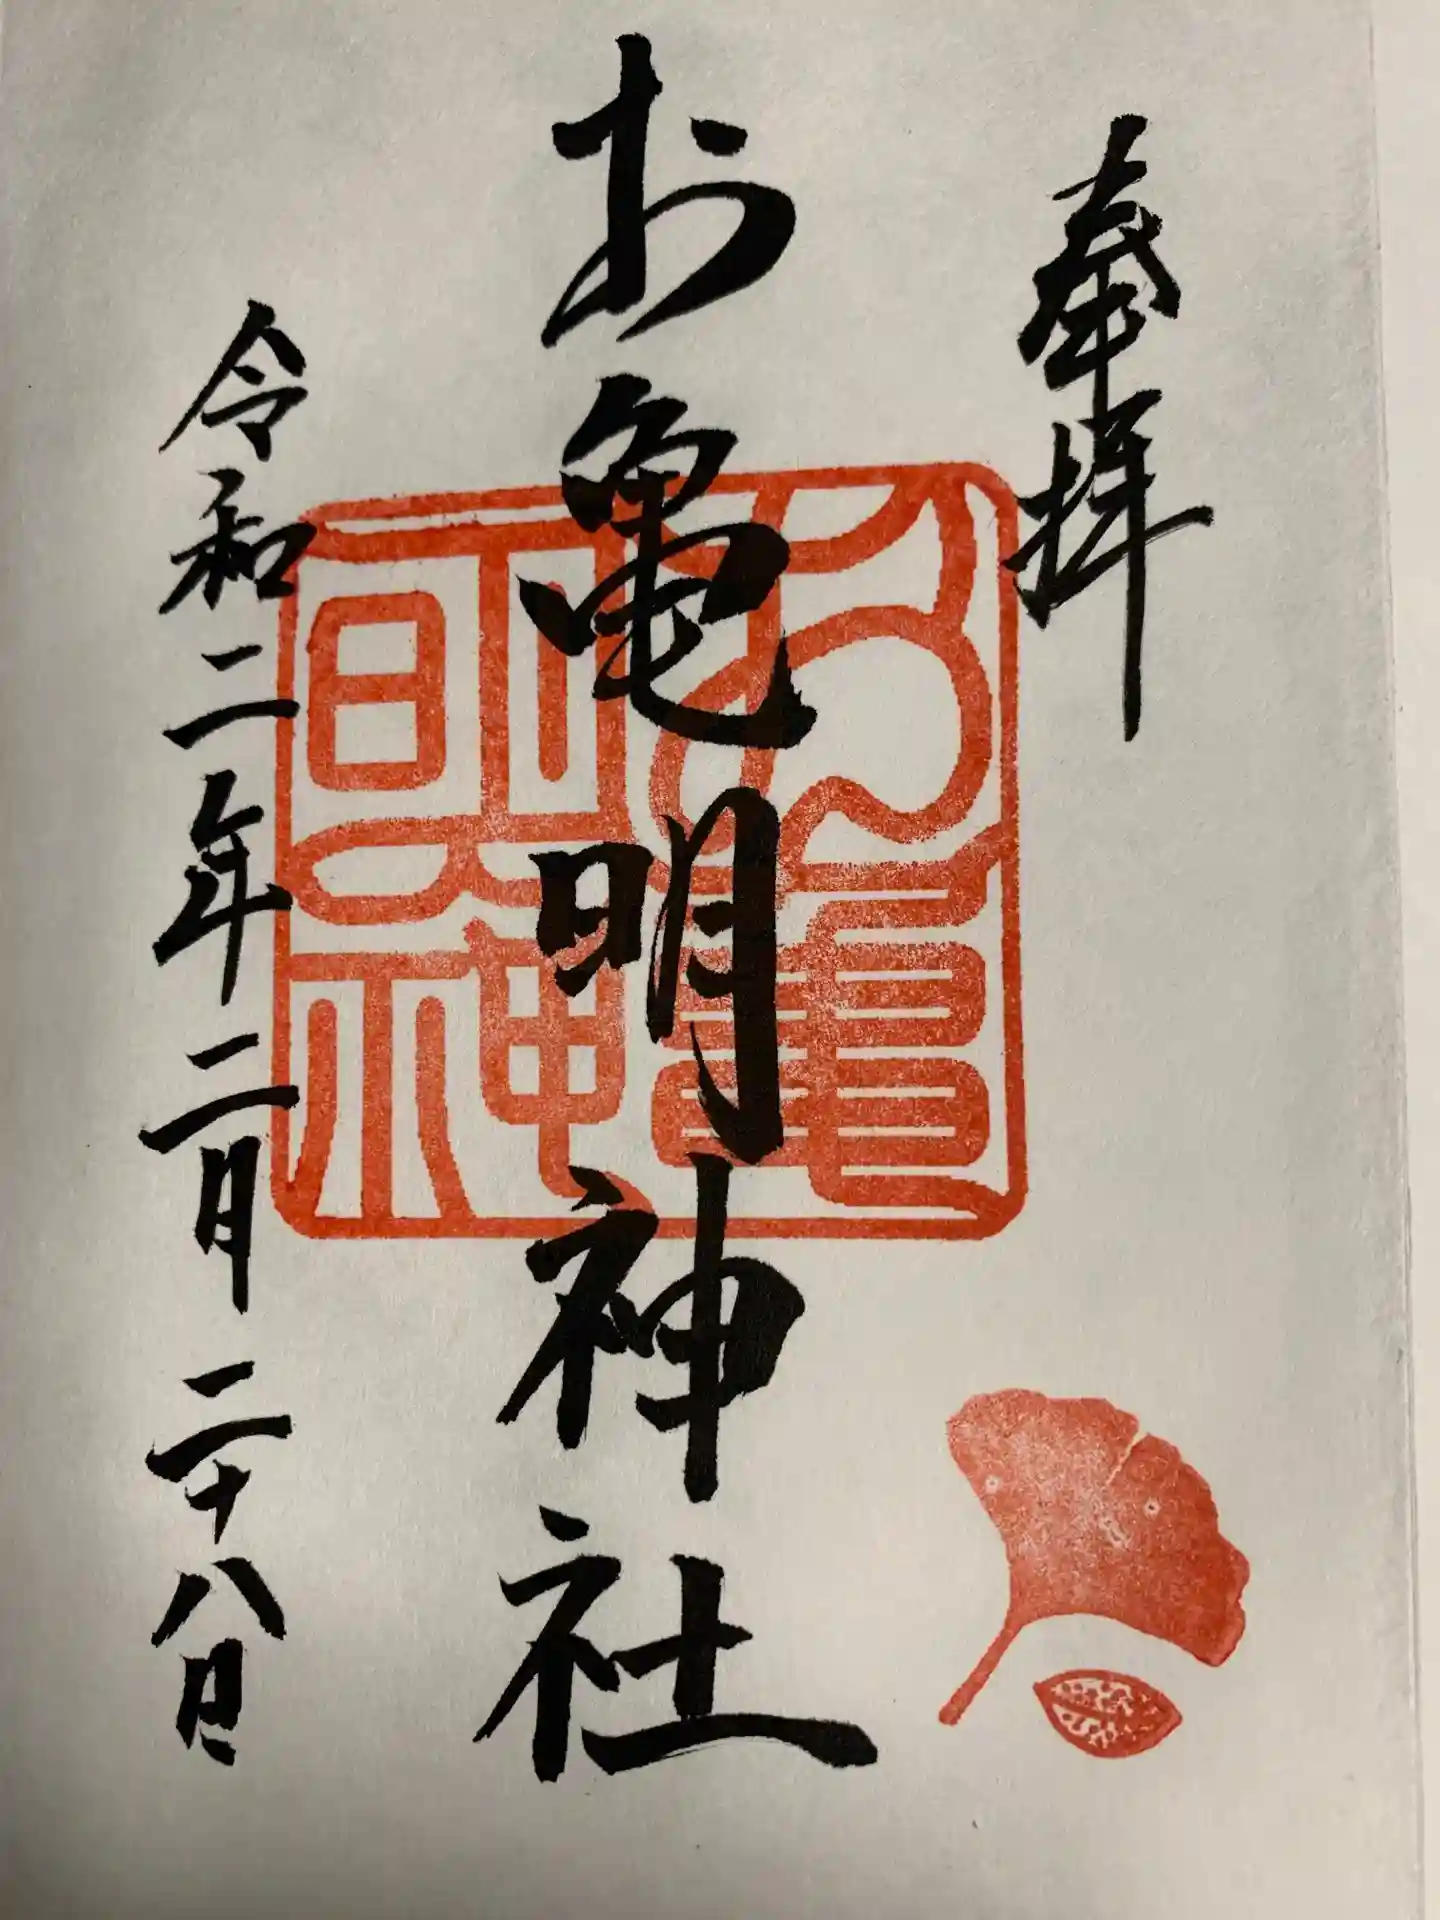 奉拝
お亀明神社
令和二年二月二十八日
お亀
明神